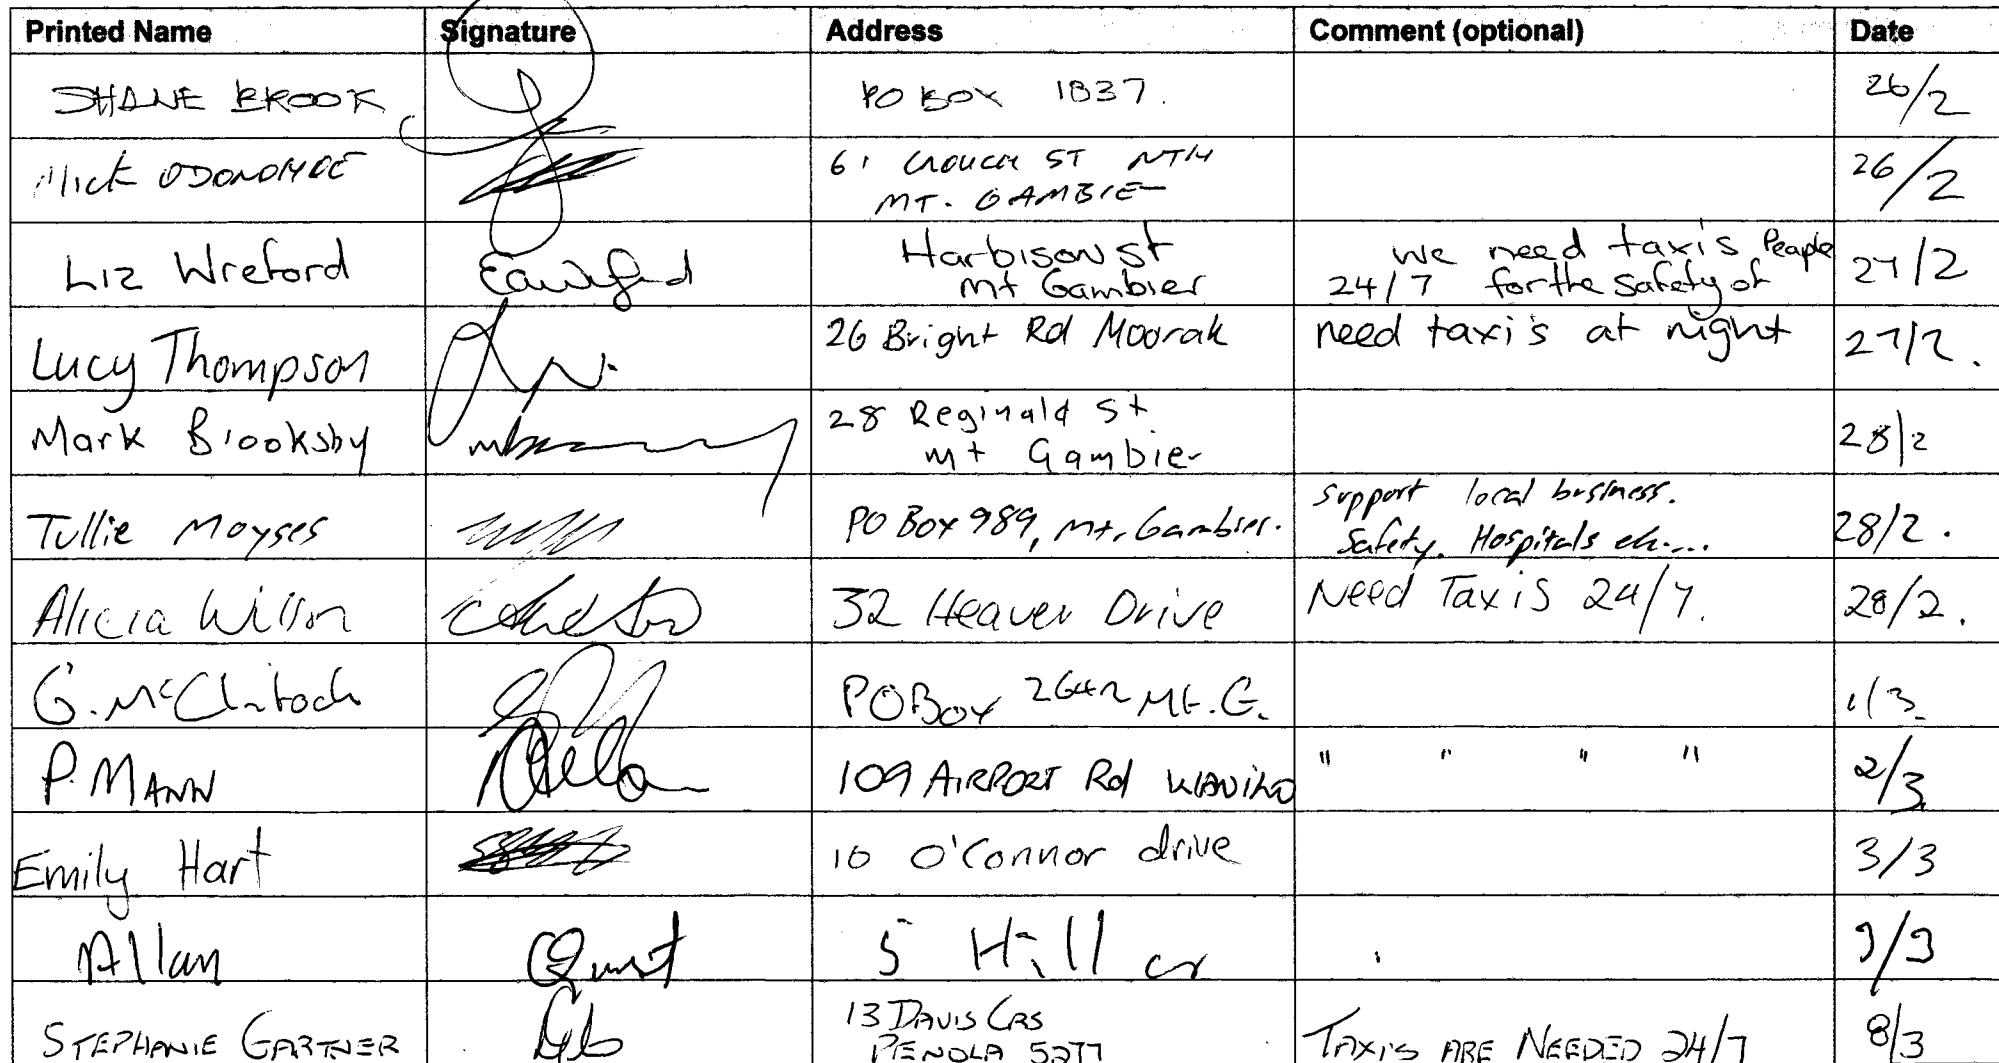 Printed Name Signature Address Comment (optional) Date
SHANE BROOK PO BOX 1837. 26/2
Mick ODONOHOE 61 CROUCH ST NTH 26/2
MT. GAMBIER
Liz Wreford Harbison st we need taxis People 27/2
Mt Gambier 24/7 for the safety of
Lucy Thompson 26 Bright Rd Moorak need taxi's at night 27/2.
Mark Brooksby 28 Reginald St 28/2
Mt Gambier
Tullie Moyses PO Box 989, Mt. Gambier. support local business. 28/2.
Safety. Hospitals etc....
Alicia Wilson 32 Heaver Drive Need Taxis 24/7. 28/2.
G. McClintock PO Box 2642 Mt. G. 1/3.
P. MANN 109 AIRPORT Rd " " " " 2/3
Emily Hart 10 O'Connor drive 3/3
Allan 5 Hill cr 3/3
STEPHANIE GARTNER 13 DAVIS CRS TAXI'S ARE NEEDED 24/7 8/3
PENOLA 5277